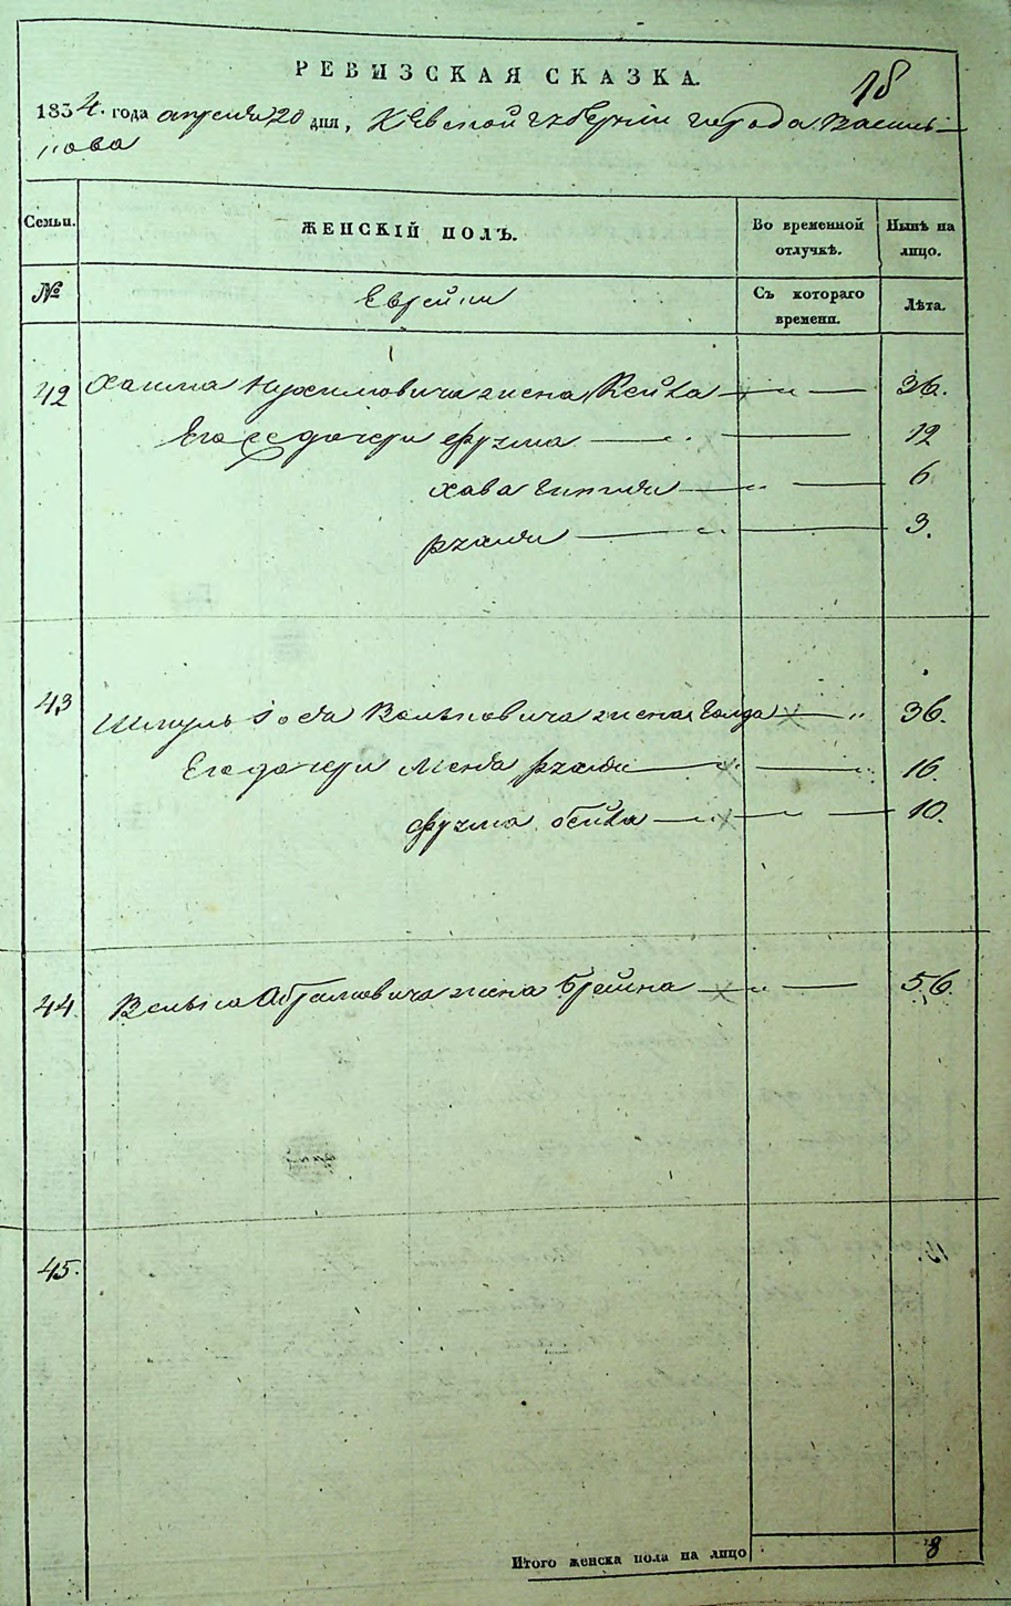 РЕВИЗСКАЯ СКАЗКА.
18
1834. года апреля 20 дня, Киевской губернии города Василь-
кова
Семьи.
ЖЕНСКІЙ ПОЛЪ.
Во временной отлучкѣ.
Нынѣ на лицо.
№
Еврейки
Съ котораго времени.
Лѣта.
42 жена Рейза — „ — 36.
Его дочери Фрума — „ — 12
Хава — „ — 6
— „ — 3.
43 Шмуль Вольковича жена Голда — „ 36.
Его дочери — „ 16.
Фрума Бейла — „ — 10.
44. Велька Абрамовича жена Брейна — „ — 56.
45.
Итого женска пола на лицо 8